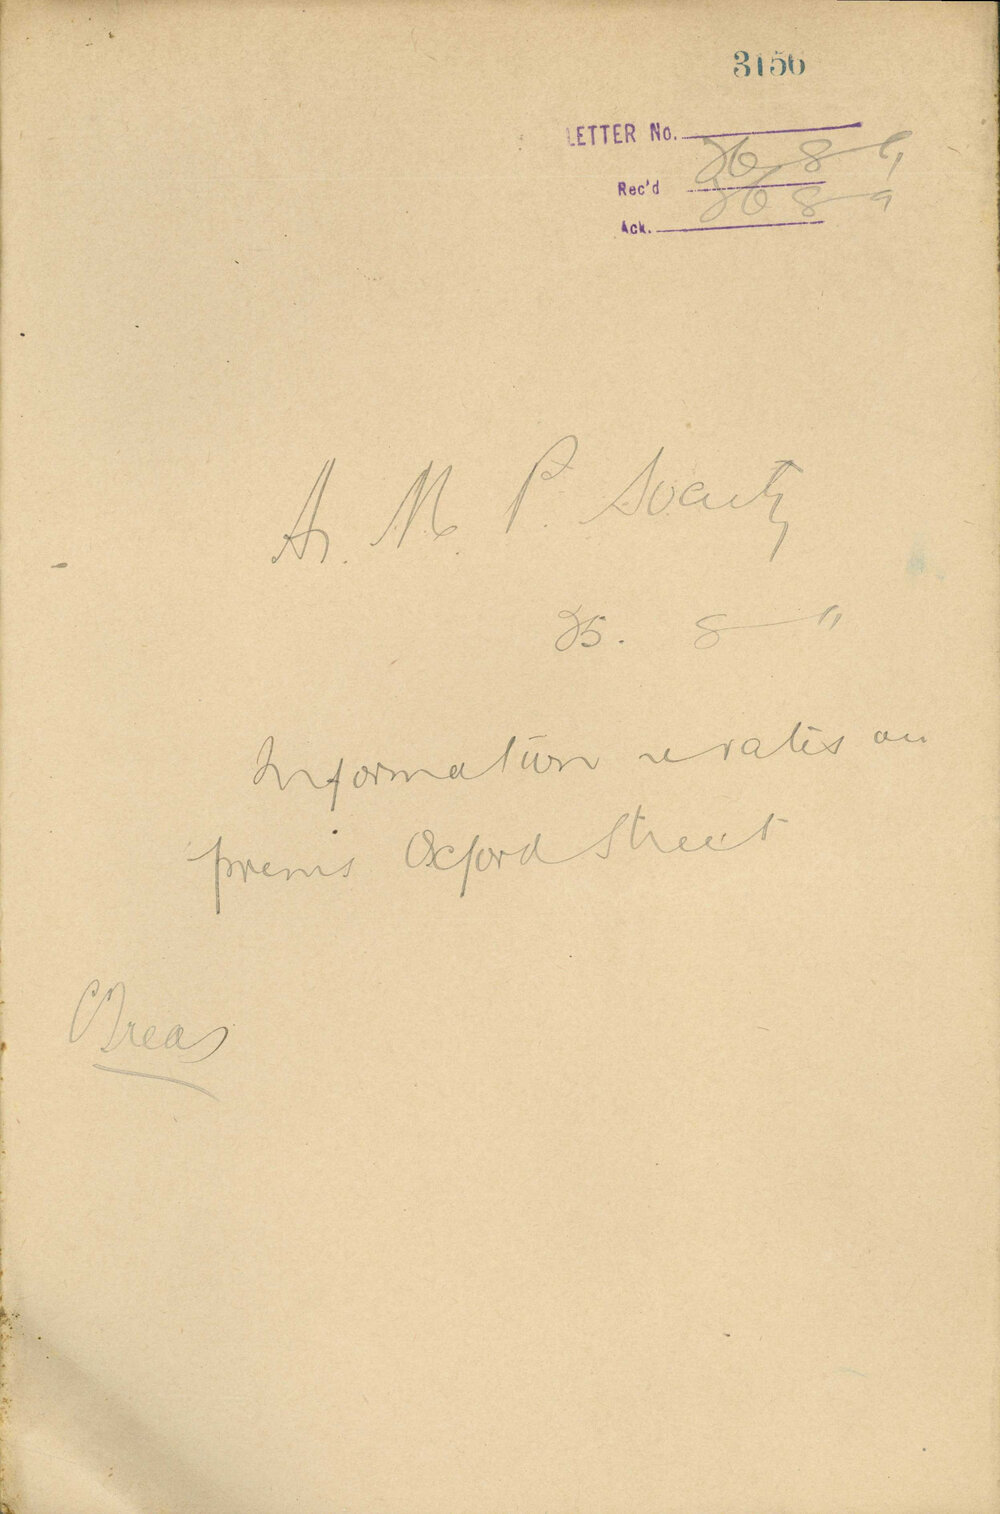 3156
LETTER No.
Rec'd 26 8 9
Ack. 26 8 9
A. M. P. Society
25. 8 "
Information re rates on
premis Oxford Street